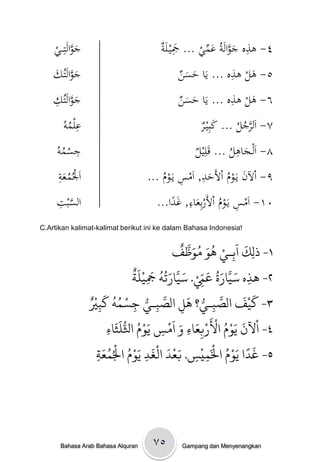 ٤- هذِه جَوَّالَةُ عَمِّيْ ... جَمِيْلَةٌ جَوَّالَتِيْ
٥- هَلْ هذِه ... يَا حَسَنٌ جَوَّالَتُكَ
٦- هَلْ هذِه ... يَا حَسَنٌ جَوَّالَتُكِ
٧- اَلرَّجُلُ ... كَبِيْرٌ عِلْمُهُ
٨- اَلْجَاهِلُ ... قَلِيْلٌ جِسْمُهُ
٩- اَلْآنَ يَوْمُ الْأَحَدِ, اَمْسِ يَوْمُ ... اَلْجُمُعَةِ
١٠- اَمْسِ يَوْمُ الْأَرْبِعَاءِ, غَدًا... السَّبْتِ
C.Artikan kalimat-kalimat berikut ini ke dalam Bahasa Indonesia!
١- ذلِكَ اَبِيْ هُوَ مُوَظَّفٌ
٢- هذِه سَيَّارَةُ عَمِّيْ. سَيَّارَتُهُ جَمِيْلَةٌ
٣- كَيْفَ الصَّبِيُّ؟ هَلِ الصَّبِيُّ جِسْمُهُ كَبِيْرٌ
٤- اَلْآنَ يَوْمُ الْأَرْبِعَاءِ وَ اَمْسِ يَوْمُ الثُّلَثَاءِ
٥- غَدًا يَوْمُ الْخَمِيْسِ. بَعْدَ الْغَدِ يَوْمُ الْجُمُعَةِ
Bahasa Arab Bahasa Alquran ٧٥ Gampang dan Menyenangkan